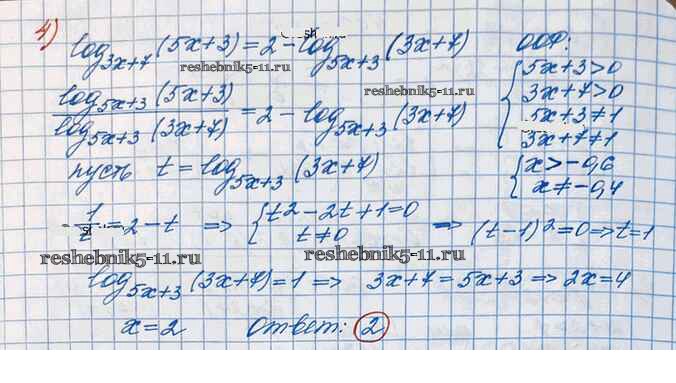 4) log₃ₓ₊₇ (5x+3) = 2 - log₅ₓ₊₃ (3x+7) ООФ:
reshebnik5-11.ru
reshebnik5-11.ru
log₅ₓ₊₃ (5x+3) / log₅ₓ₊₃ (3x+7) = 2 - log₅ₓ₊₃ (3x+7)
{ 5x+3>0
3x+7>0
5x+3≠1
3x+7≠1
пусть t = log₅ₓ₊₃ (3x+7)
{ x>-0,6
x≠-0,4
1/t = 2 - t => { t² - 2t + 1 = 0
t≠0
=> (t-1)² = 0 => t = 1
reshebnik5-11.ru
reshebnik5-11.ru
log₅ₓ₊₃ (3x+7) = 1 => 3x+7 = 5x+3 => 2x = 4
x = 2 Ответ: 2